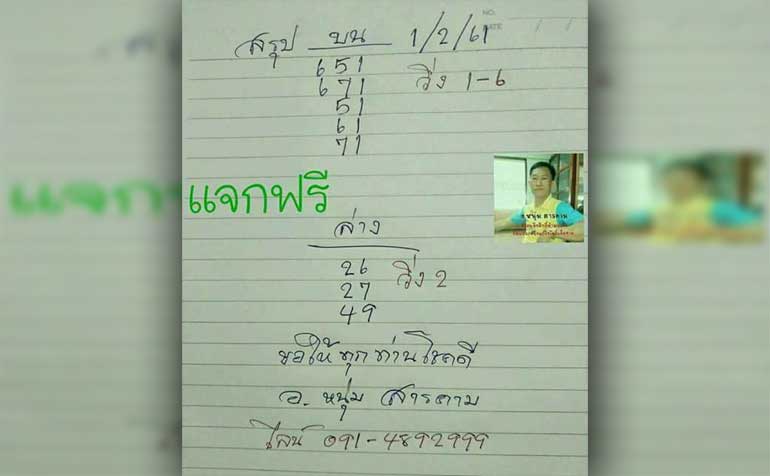 NO.
DATE
สรุป บน 1/2/61
651
671 วิ่ง 1-6
51
61
71
แจกฟรี
อ.หนุ่ม สารคาม
ล่าง
26
27 วิ่ง 2
49
ขอให้ทุกท่านโชคดี
อ. หนุ่ม สารคาม
ไลน์ 091-4892999